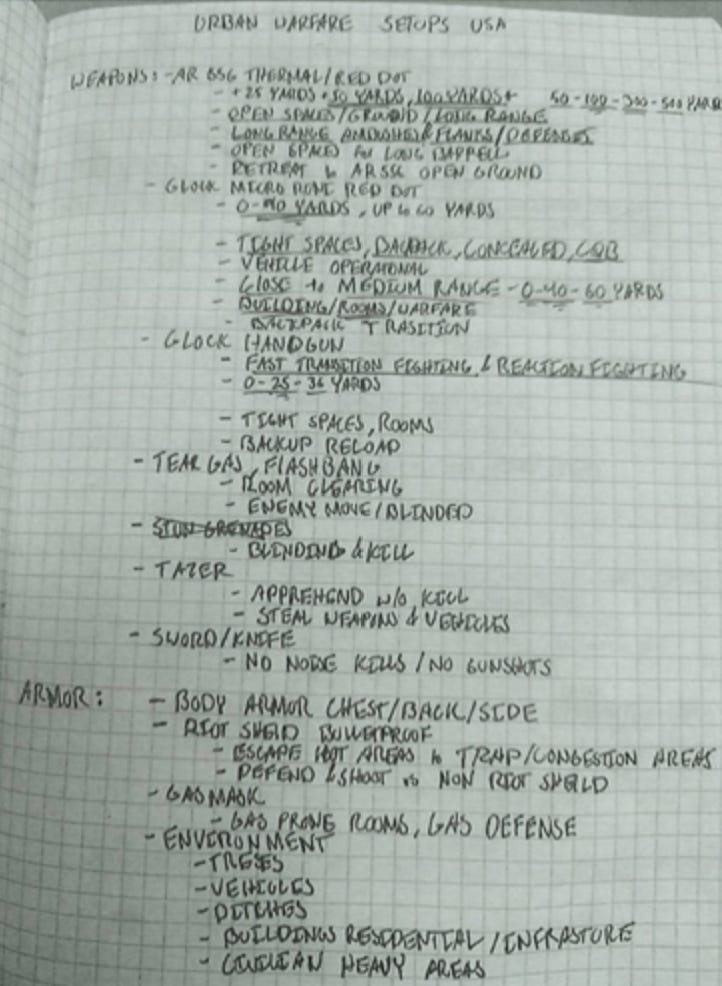 URBAN WARFARE SETUPS USA
WEAPONS: - AR 556 THERMAL/RED DOT
- +25 YARDS + 50 YARDS, 100 YARDS + 50-100-300-500 YARD
- OPEN SPACES/GROUND/LONG RANGE
- LONG RANGE AMBUSHES & FLANKS/DEFENSES
- OPEN SPACES LONG BARRELL
- RETREAT to AR OPEN GROUND
- GLOCK MICRO RONI RED DOT
- YARDS, UP to 60 YARDS
- TIGHT SPACES, BACKPACK, CONCEALED, CQB
- VEHICLE OPERATIONAL
- CLOSE to MEDIUM RANGE - 0-40-60 YARDS
- BUILDING/ROOMS/WARFARE
- BACKPACK TRASITION
- GLOCK HANDGUN
- FAST TRANSITION FIGHTING & REACTION FIGHTING
- 0-25-36 YARDS
- TIGHT SPACES, ROOMS
- BACKUP RELOAD
- TEAR GAS, FLASHBANG
- ROOM CLEARING
- ENEMY MOVE/BLINDED
- STUN GRENADES
- BLINDING & KILL
- TAZER
- APPREHEND W/O KILL
- STEAL WEAPINS & VEHICLES
- SWORD/KNIFE
- NO NOISE KILLS/NO GUNSHOTS
ARMOR: - BODY ARMOR CHEST/BACK/SIDE
- RIOT SHEILD BULLETPROOF
- ESCAPE HOT AREAS to TRAP/CONGESTION AREAS
- DEFEND & SHOOT vs NON RIOT SHEILD
- GAS MASK
- GAS PRONE ROOMS, GAS DEFENSE
- ENVIRONMENT
- TREES
- VEHICLES
- DITCHES
- BUILDINGS RESIDENTIAL/INFRASTURE
- CIVILIAN HEAVY AREAS